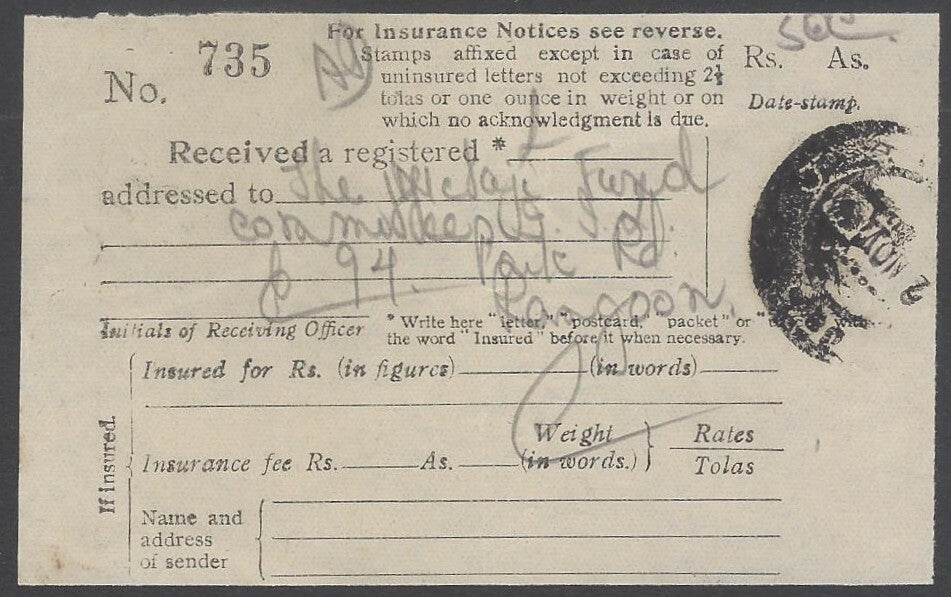 For Insurance Notices see reverse.
No. 735
Stamps affixed except in case of
uninsured letters not exceeding 2½
tolas or one ounce in weight or on
which no acknowledgment is due.
Rs. As.
Date-stamp.
Received a registered *
addressed to The Fund
94. Park Rd.
Rangoon.
NOV
Initials of Receiving Officer
* Write here "letter," "postcard," "packet" or " with
the word "Insured" before it when necessary.
If insured.
Insured for Rs. (in figures) (in words)
Insurance fee Rs. As. Weight (in words.) Rates
Tolas
Name and
address
of sender